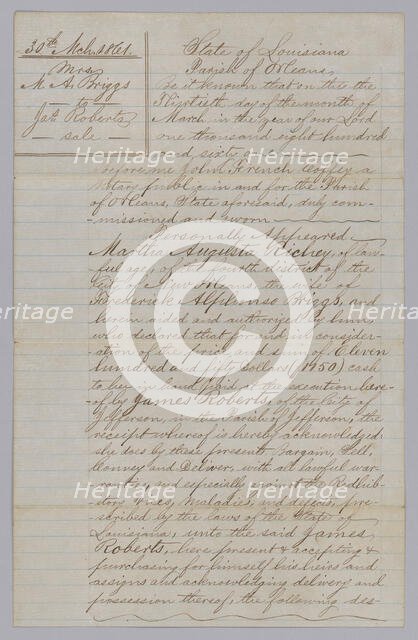 30th Mch. 1861.
Mrs.
M. A. Briggs
to
Jas. Roberts
sale
State of Louisiana
Parish of Orleans,
Be it known that on this the
Thirtieth day of the month of
March in the year of our Lord
one thousand eight hundred
and sixty one
before me John French Coffey a
Notary public in and for the Parish
of Orleans, State aforesaid, duly com-
missioned and sworn
Personally Appeared
Martha Augusta Richey, of law-
ful age, of the fourth district of the
City of New Orleans, the wife of
Frederick Alphonso Briggs, and
herein aided and authorized by him,
who declared that for and in consider-
ation of the price and sum of Eleven
hundred and fifty dollars ($1150) cash
to her in hand paid at the execution here-
of by James Roberts, of the City of
Jefferson, in the Parish of Jefferson, the
receipt whereof is hereby acknowledged,
she does by these presents Bargain, Sell,
Convey and Deliver, with all lawful war-
ranties, and especially against the Redhibi-
tory vices, maladies, and defects, pre-
scribed by the laws of the State of
Louisiana, unto the said James
Roberts, here present & accepting &
purchasing for himself his heirs and
assigns and acknowledging delivery and
possession thereof, the following des-
Heritage
Heritage
Heritage
Heritage
Heritage
Heritage
Heritage
Heritage
Images
Images
Images
Images
C